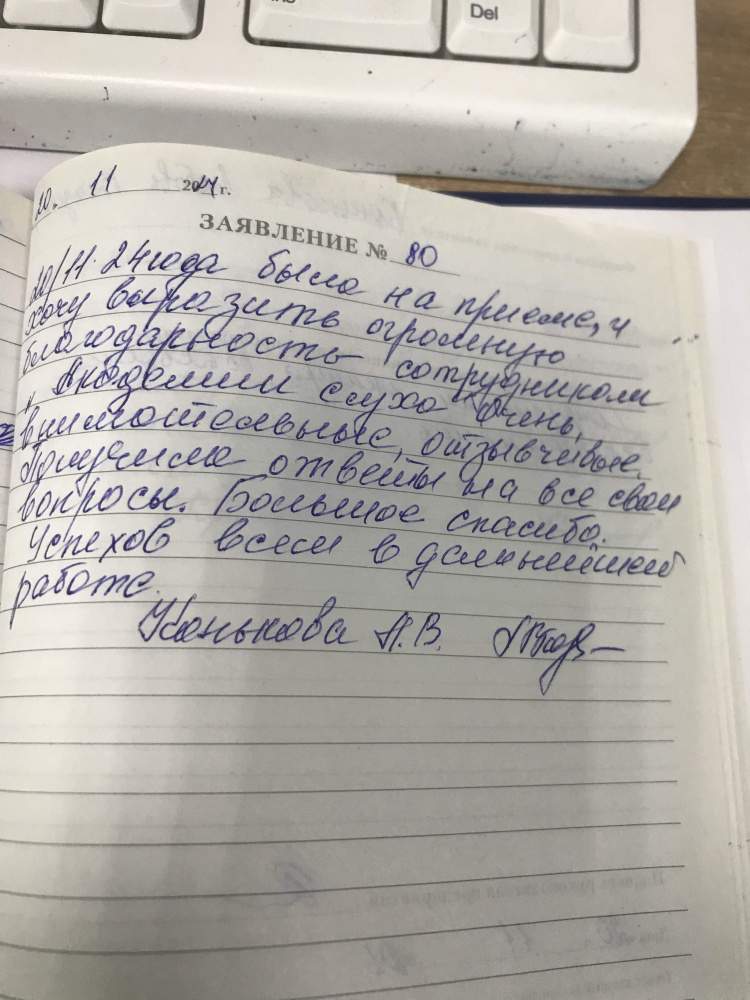 Del
20. 11 2024 г.
ЗАЯВЛЕНИЕ № 80
20/11.24года была на приеме, и
хочу выразить огромную
благодарность сотрудникам
"Академии слуха" Очень,
внимательные, отзывчивые.
Получила ответы на все свои
вопросы. Большое спасибо.
Успехов всем в дальнейшей
работе.
Конькова Л.В.